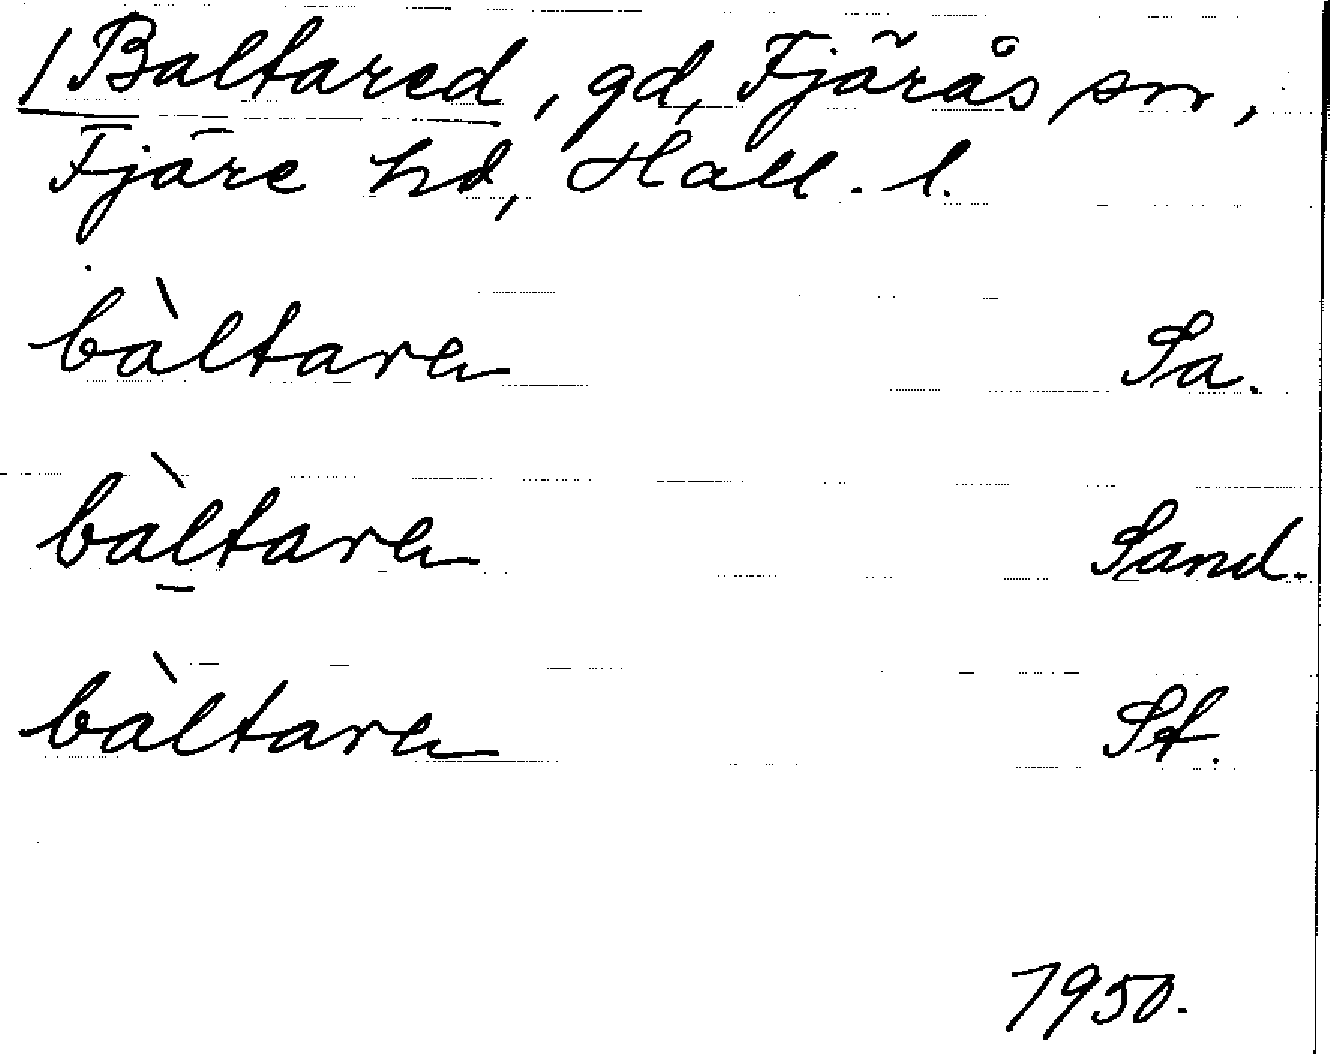 /Baltared, gd, Fjärås sn,
Fjäre hd, Hall. l.
bàltara Sa.
bàltara Sand.
bàltara Sf.
1950.